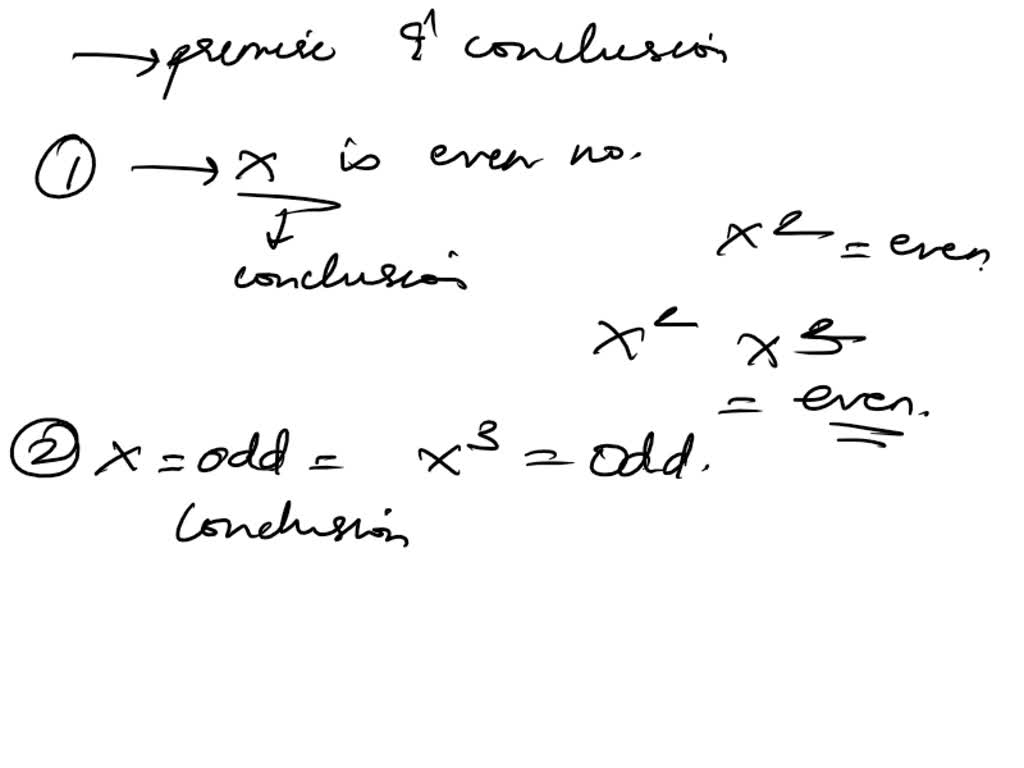 → premise & conclusion
① → x is even no.
conclusion
x² = even.
x² x³
= even.
② x = odd = x³ = odd.
Conclusion